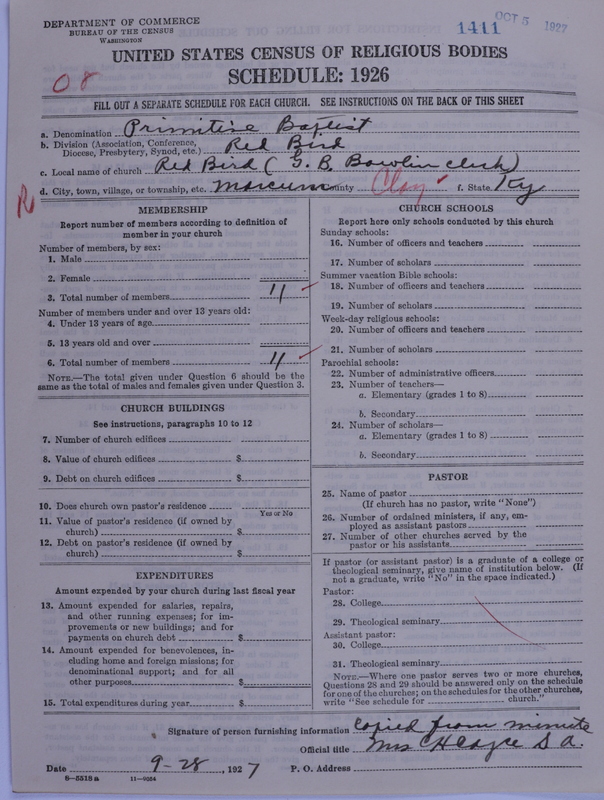 DEPARTMENT OF COMMERCE
BUREAU OF THE CENSUS
WASHINGTON
1411 OCT 5 1927
UNITED STATES CENSUS OF RELIGIOUS BODIES
SCHEDULE: 1926
08
FILL OUT A SEPARATE SCHEDULE FOR EACH CHURCH. SEE INSTRUCTIONS ON THE BACK OF THIS SHEET
a. Denomination Primitive Baptist
b. Division (Association, Conference, Diocese, Presbytery, Synod, etc.) Red Bird
c. Local name of church Red Bird (G. B. Bowlin clerk)
d. City, town, village, or township, etc. Marcum County Clay f. State Ky
R
MEMBERSHIP
Report number of members according to definition of
member in your church
Number of members, by sex:
1. Male
2. Female
3. Total number of members 11
Number of members under and over 13 years old:
4. Under 13 years of age
5. 13 years old and over
6. Total number of members 11
NOTE.—The total given under Question 6 should be the
same as the total of males and females given under Question 3.
CHURCH BUILDINGS
See instructions, paragraphs 10 to 12
7. Number of church edifices
8. Value of church edifices $
9. Debt on church edifices $
10. Does church own pastor's residence
Yes or No
11. Value of pastor's residence (if owned by
church) $
12. Debt on pastor's residence (if owned by
church) $
EXPENDITURES
Amount expended by your church during last fiscal year
13. Amount expended for salaries, repairs,
and other running expenses; for im-
provements or new buildings; and for
payments on church debt $
14. Amount expended for benevolences, in-
cluding home and foreign missions; for
denominational support; and for all
other purposes $
15. Total expenditures during year $
CHURCH SCHOOLS
Report here only schools conducted by this church
Sunday schools:
16. Number of officers and teachers
17. Number of scholars
Summer vacation Bible schools:
18. Number of officers and teachers
19. Number of scholars
Week-day religious schools:
20. Number of officers and teachers
21. Number of scholars
Parochial schools:
22. Number of administrative officers
23. Number of teachers—
a. Elementary (grades 1 to 8)
b. Secondary
24. Number of scholars—
a. Elementary (grades 1 to 8)
b. Secondary
PASTOR
25. Name of pastor
(If church has no pastor, write "None")
26. Number of ordained ministers, if any, em-
ployed as assistant pastors
27. Number of other churches served by the
pastor or his assistants
If pastor (or assistant pastor) is a graduate of a college or
theological seminary, give name of institution below. (If
not a graduate, write "No" in the space indicated.)
Pastor:
28. College
29. Theological seminary
Assistant pastor:
30. College
31. Theological seminary
NOTE.—Where one pastor serves two or more churches,
Questions 28 and 29 should be answered only on the schedule
for one of the churches; on the schedules for the other churches,
write "See schedule for church."
Signature of person furnishing information Copied from minute
Official title Mrs S. A.
Date 9-28, 1927 P. O. Address
8-5518 a 11-9054